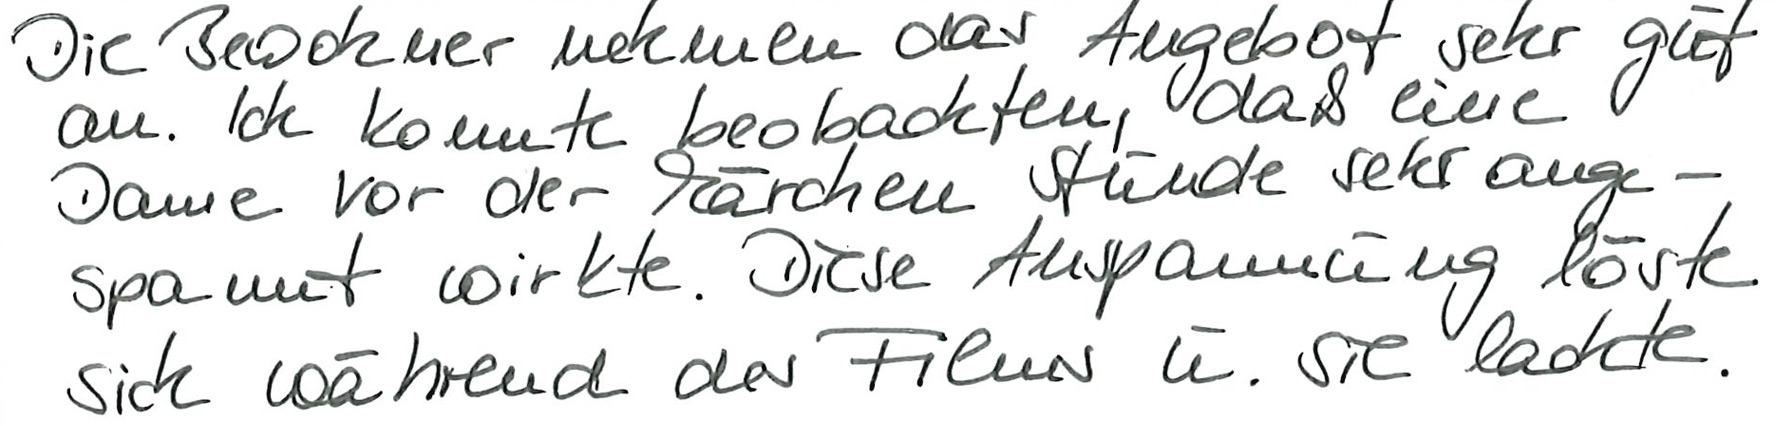 Die Bewohner nehmen das Angebot sehr gut
an. Ich konnte beobachten, daß eine
Dame vor der Märchen Stunde sehr ange-
spannt wirkte. Diese Anspannung löste
sich während des Films u. sie lachte.